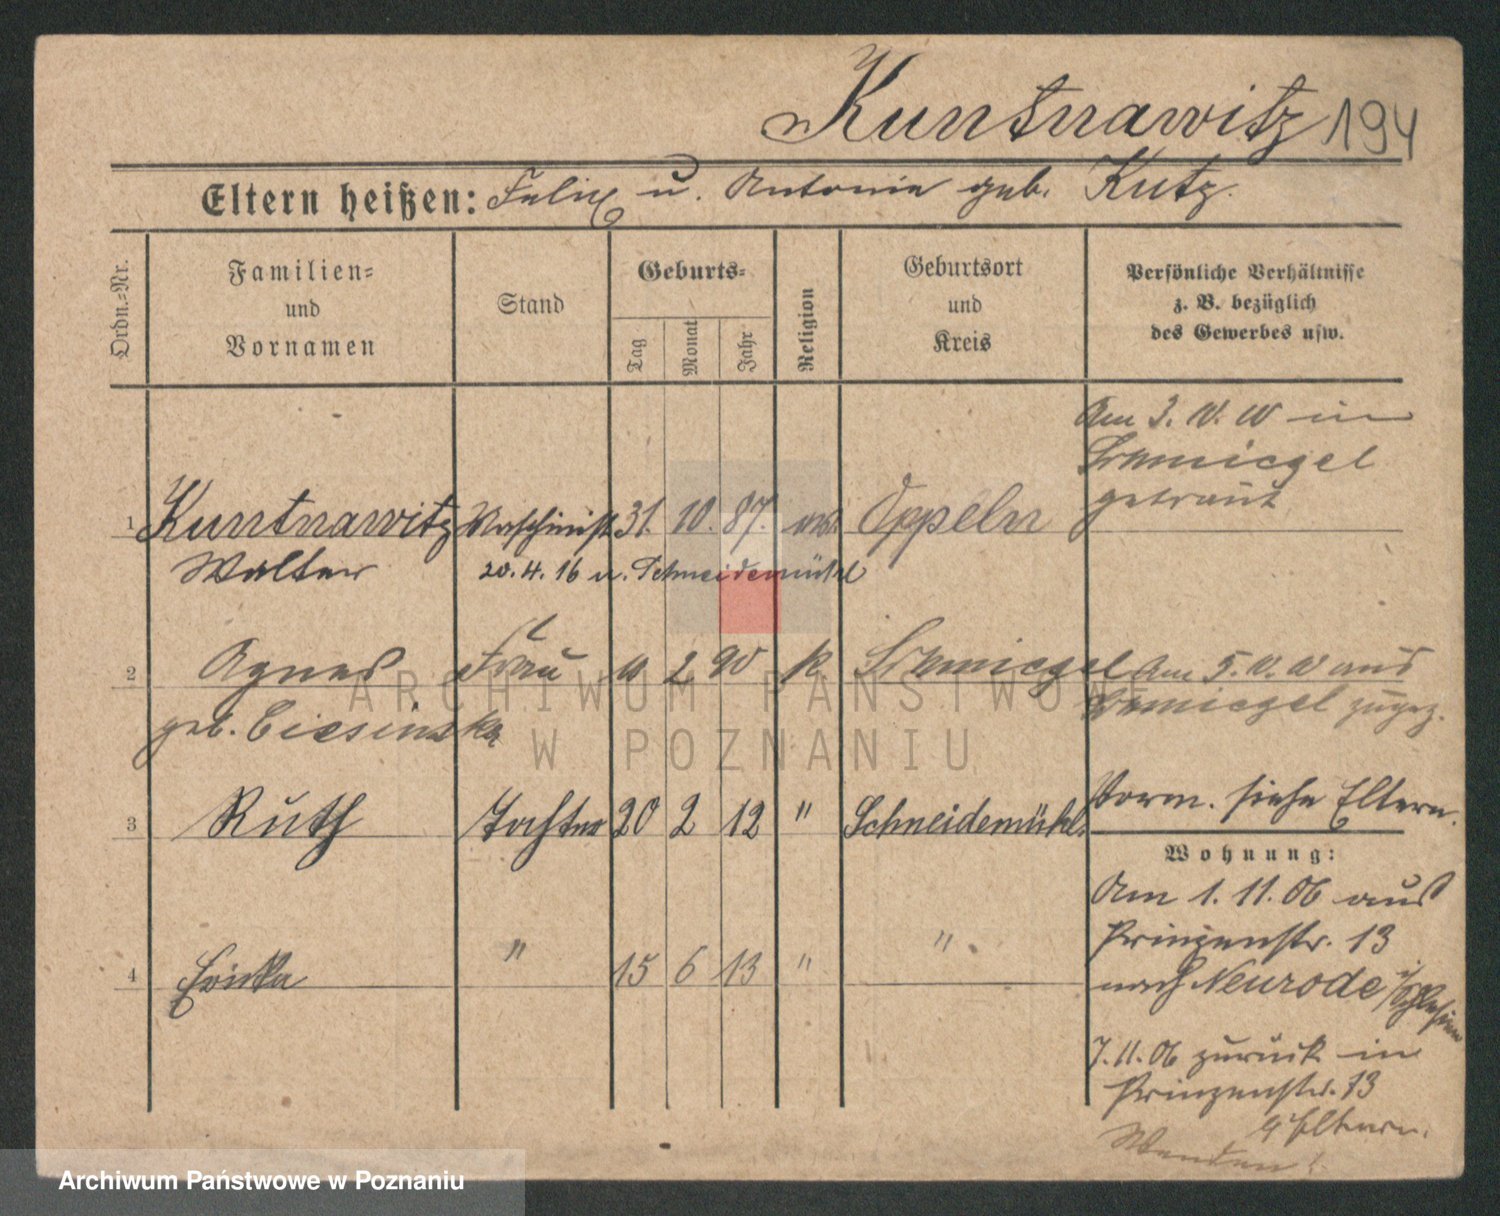 Kuntnawitz 194
Eltern heißen: Felix u. Antonie geb. Kutz.
Ordn.-Nr.
Familien-
und
Vornamen
Stand
Geburts-
Tag
Monat
Jahr
Religion
Geburtsort
und
Kreis
Persönliche Verhältnisse
z. B. bezüglich
des Gewerbes usw.
Am 3. V. in
Schmiegel
getraut
1 Kuntnawitz Maschinist 31. 10. 87. Oppeln
Walter 20. 4. 16 n. Schneidemühl
2 Agnes Frau 2 90 k. Schmiegel Am 5. V. aus
geb. Ciesinska Schmiegel zugez.
3 Ruth Tochter 20 2 12 " Schneidemühl Vorm. siehe Eltern.
Wohnung:
Am 1. 11. 06 aus
Prinzenstr. 13
nach Neurode i/Schlesien
4 Ericka " 15 6 13 " "
7. 11. 06 zurück in
Prinzenstr. 13
Eltern.
Wenden!
ARCHIWUM PAŃSTWOWE
W POZNANIU
Archiwum Państwowe w Poznaniu